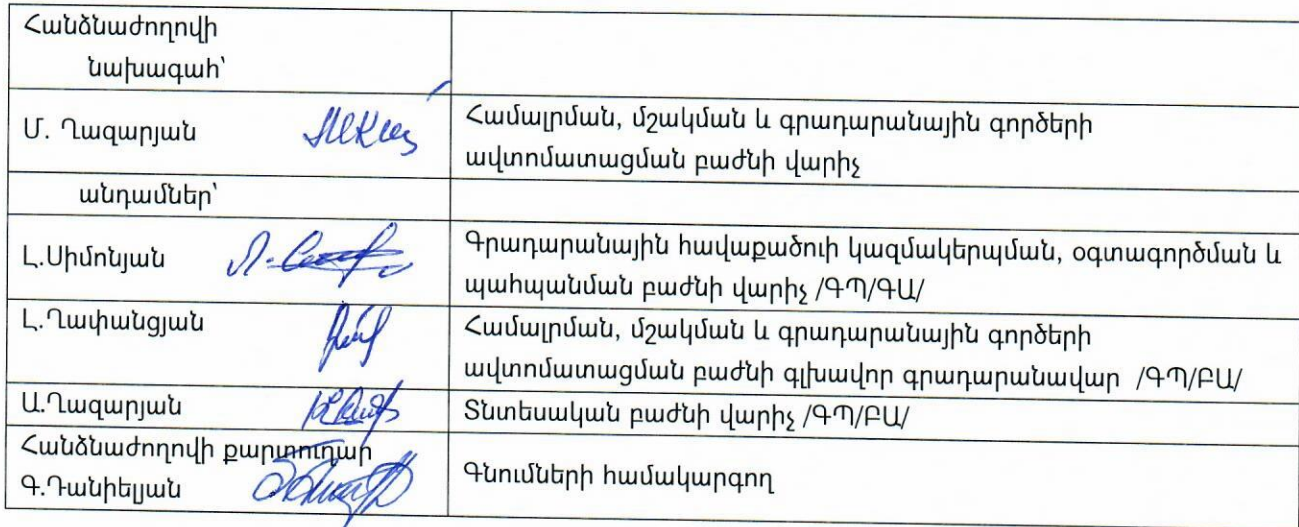 Հանձնաժողովի
նախագահ՝
Մ. Ղազարյան
Համալրման, մշակման և գրադարանային գործերի
ավտոմատացման բաժնի վարիչ
անդամներ՝
Լ.Սիմոնյան
Գրադարանային հավաքածուի կազմակերպման, օգտագործման և
պահպանման բաժնի վարիչ /ԳՊ/ԳԱ/
Լ.Ղափանցյան
Համալրման, մշակման և գրադարանային գործերի
ավտոմատացման բաժնի գլխավոր գրադարանավար /ԳՊ/ԲԱ/
Ա.Ղազարյան
Տնտեսական բաժնի վարիչ /ԳՊ/ԲԱ/
Հանձնաժողովի քարտուղար
Գ.Դանիելյան
Գնումների համակարգող